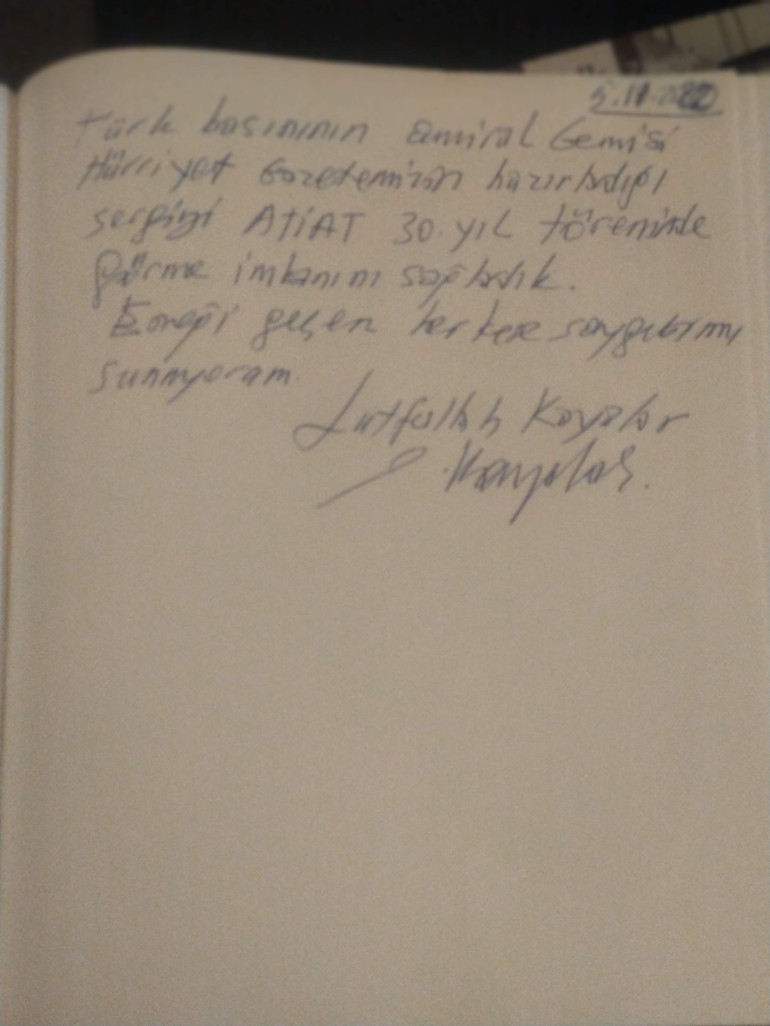 5.11.2022
Türk basınının amiral Gemisi
Hürriyet Gazetemizin hazırladığı
sergiyi ATİAT 30.yıL töreninde
görme imkanını sağladık.
Emeği geçen herkese saygılarımı
sunuyorum.
Lutfullah Kayalar
Kayalar.